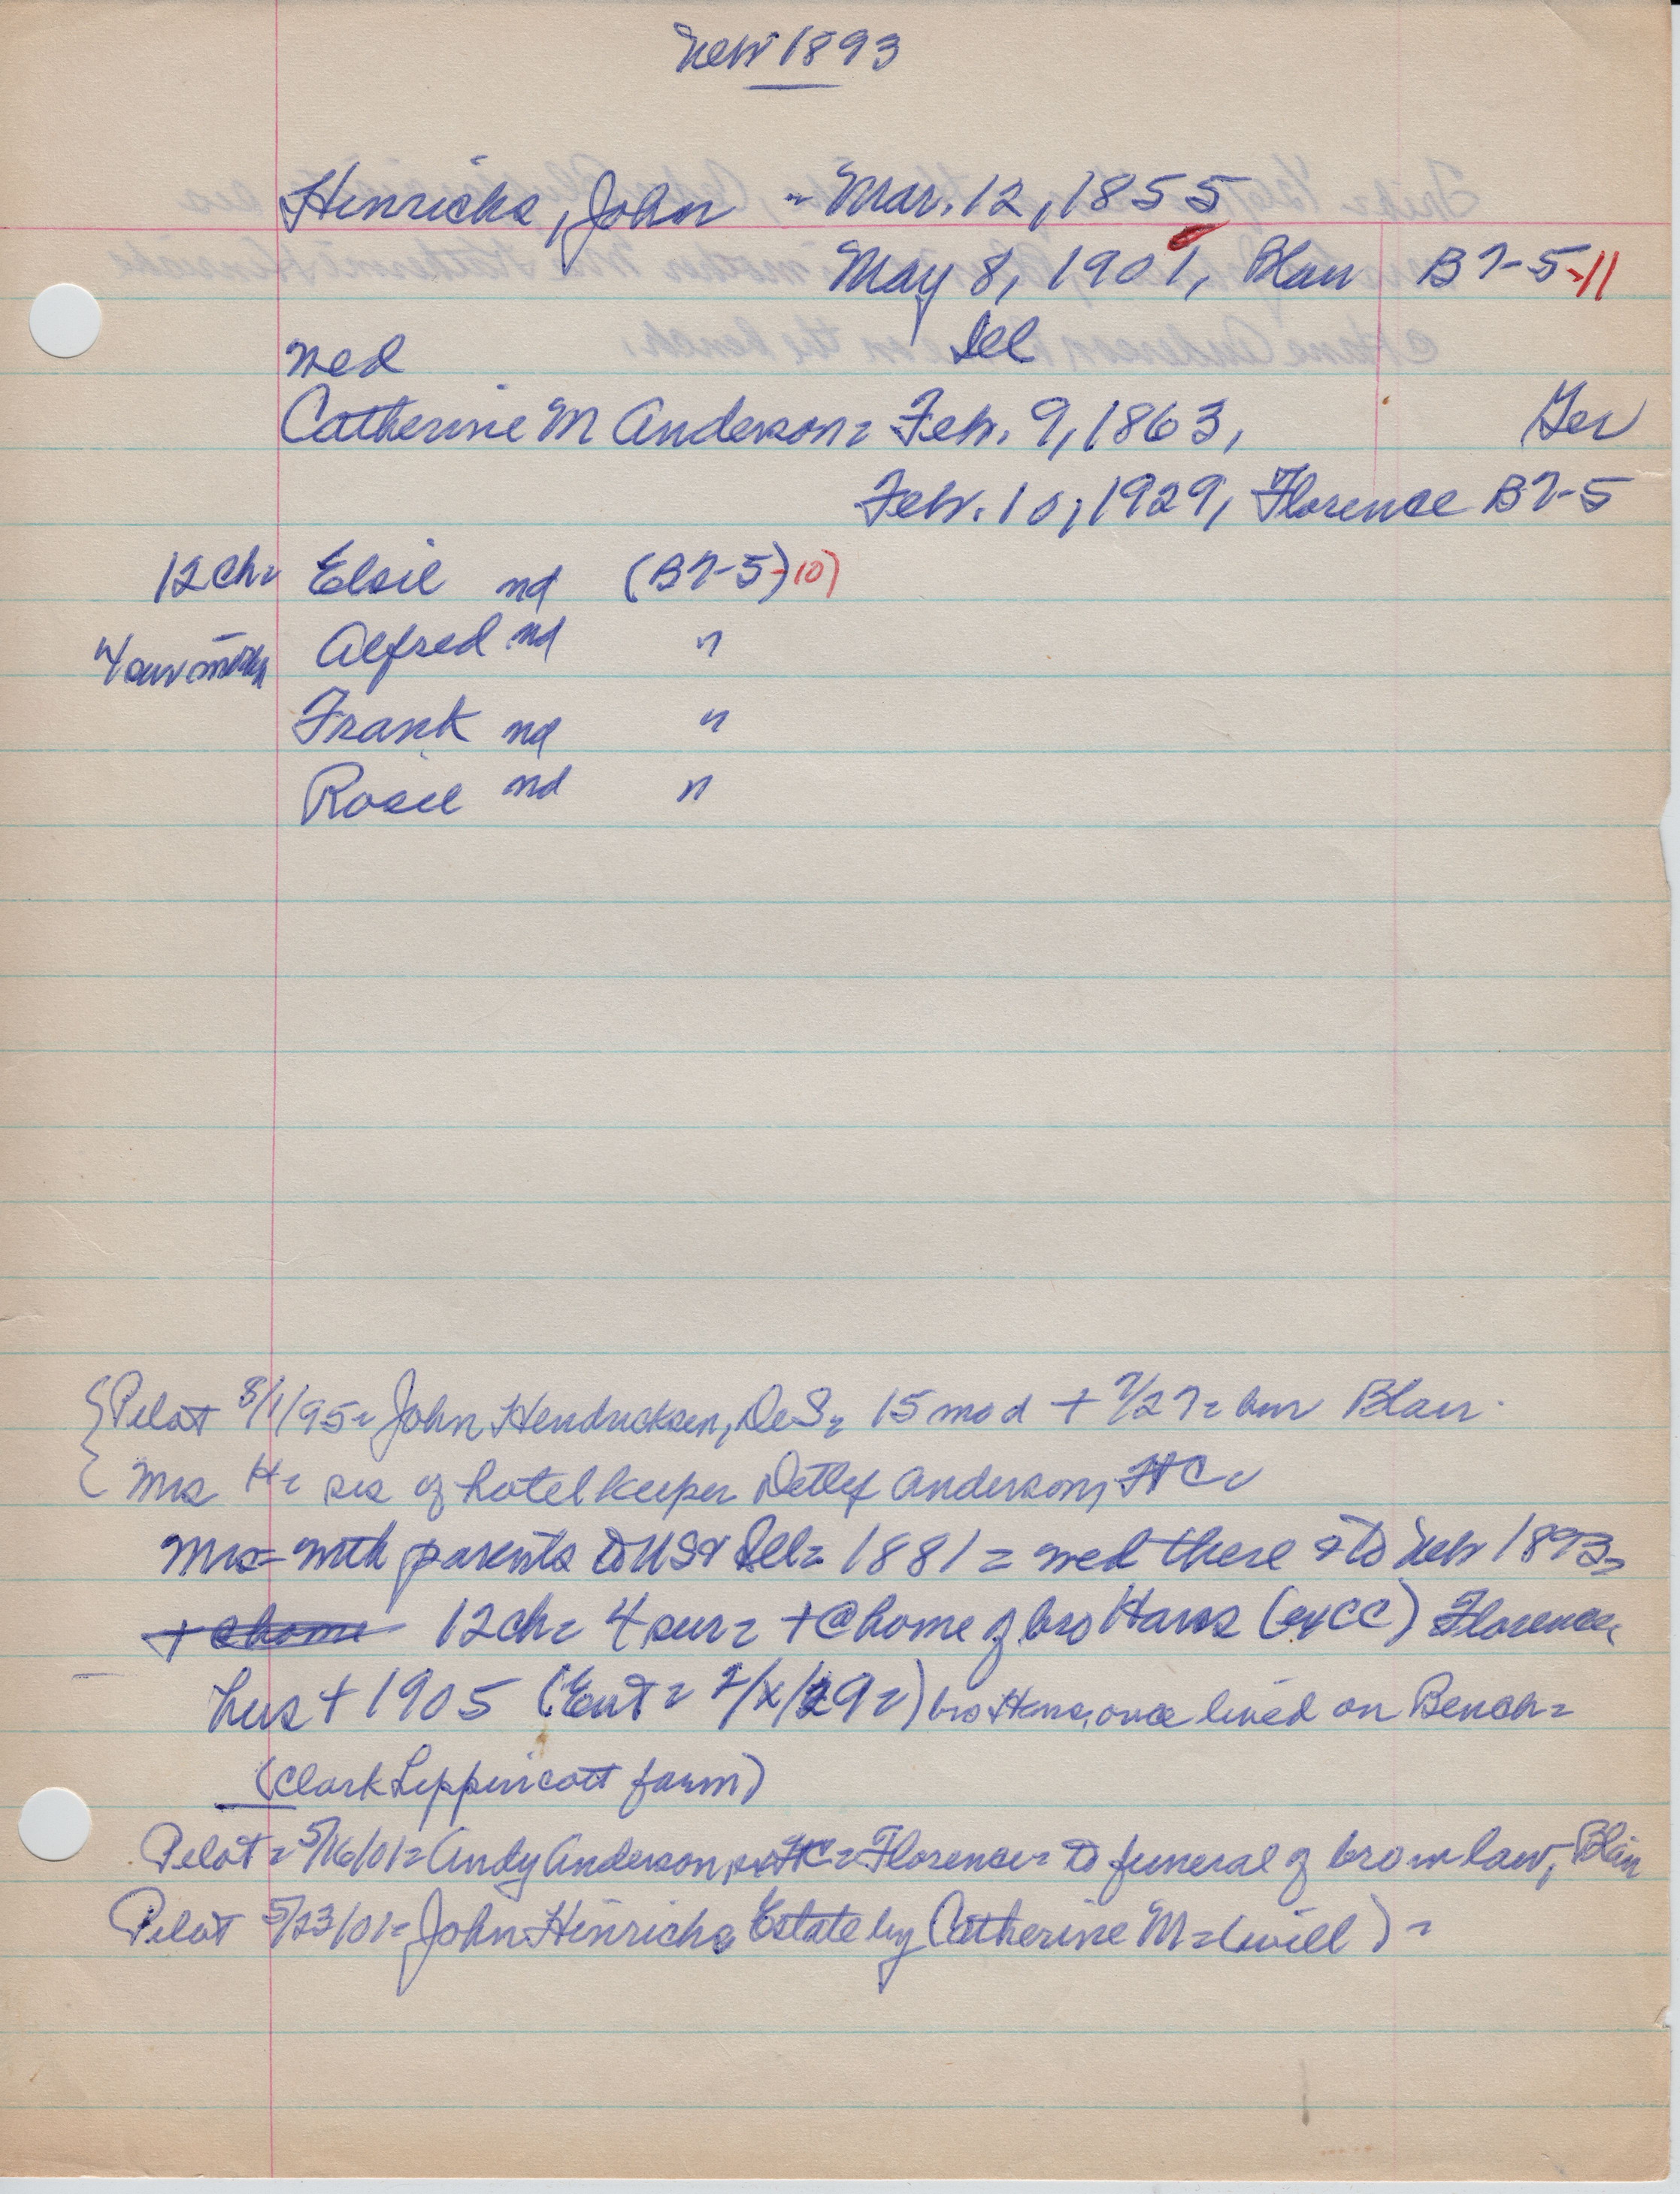 Neb 1893
Hinrichs, John - Mar. 12, 1855
May 8, 1901, Blair B7-5-11
wed Ill
Catherine M Anderson = Feb. 9, 1863, Ger
Feb. 10, 1929, Florence B7-5
12 ch = Elsie nd (B7-5)-10)
4 surv Alfred nd "
Frank nd "
Rosie nd "
Pilot 8/1/95 = John Hendricksen, DeS = 15 mo d + 7/27 = bur Blair.
Mrs H = sis of hotel keeper Detlef Anderson, FtC =
Mrs = with parents to US & Ill = 1881 = wed there & to Neb 1893 =
+ @ home 12 ch = 4 sur = + @ home of bro Hans (ex CC) Florence,
hus + 1905 (Ent = 2/x/29 =) bro Hans, once lived on Bench =
(Clark Lippincott farm)
Pilot = 5/16/01 = Andy Anderson, FtC = Florence = to funeral of bro in law, Blair
Pilot 5/23/01 = John Hinrichs Estate by Catherine M = (will) =